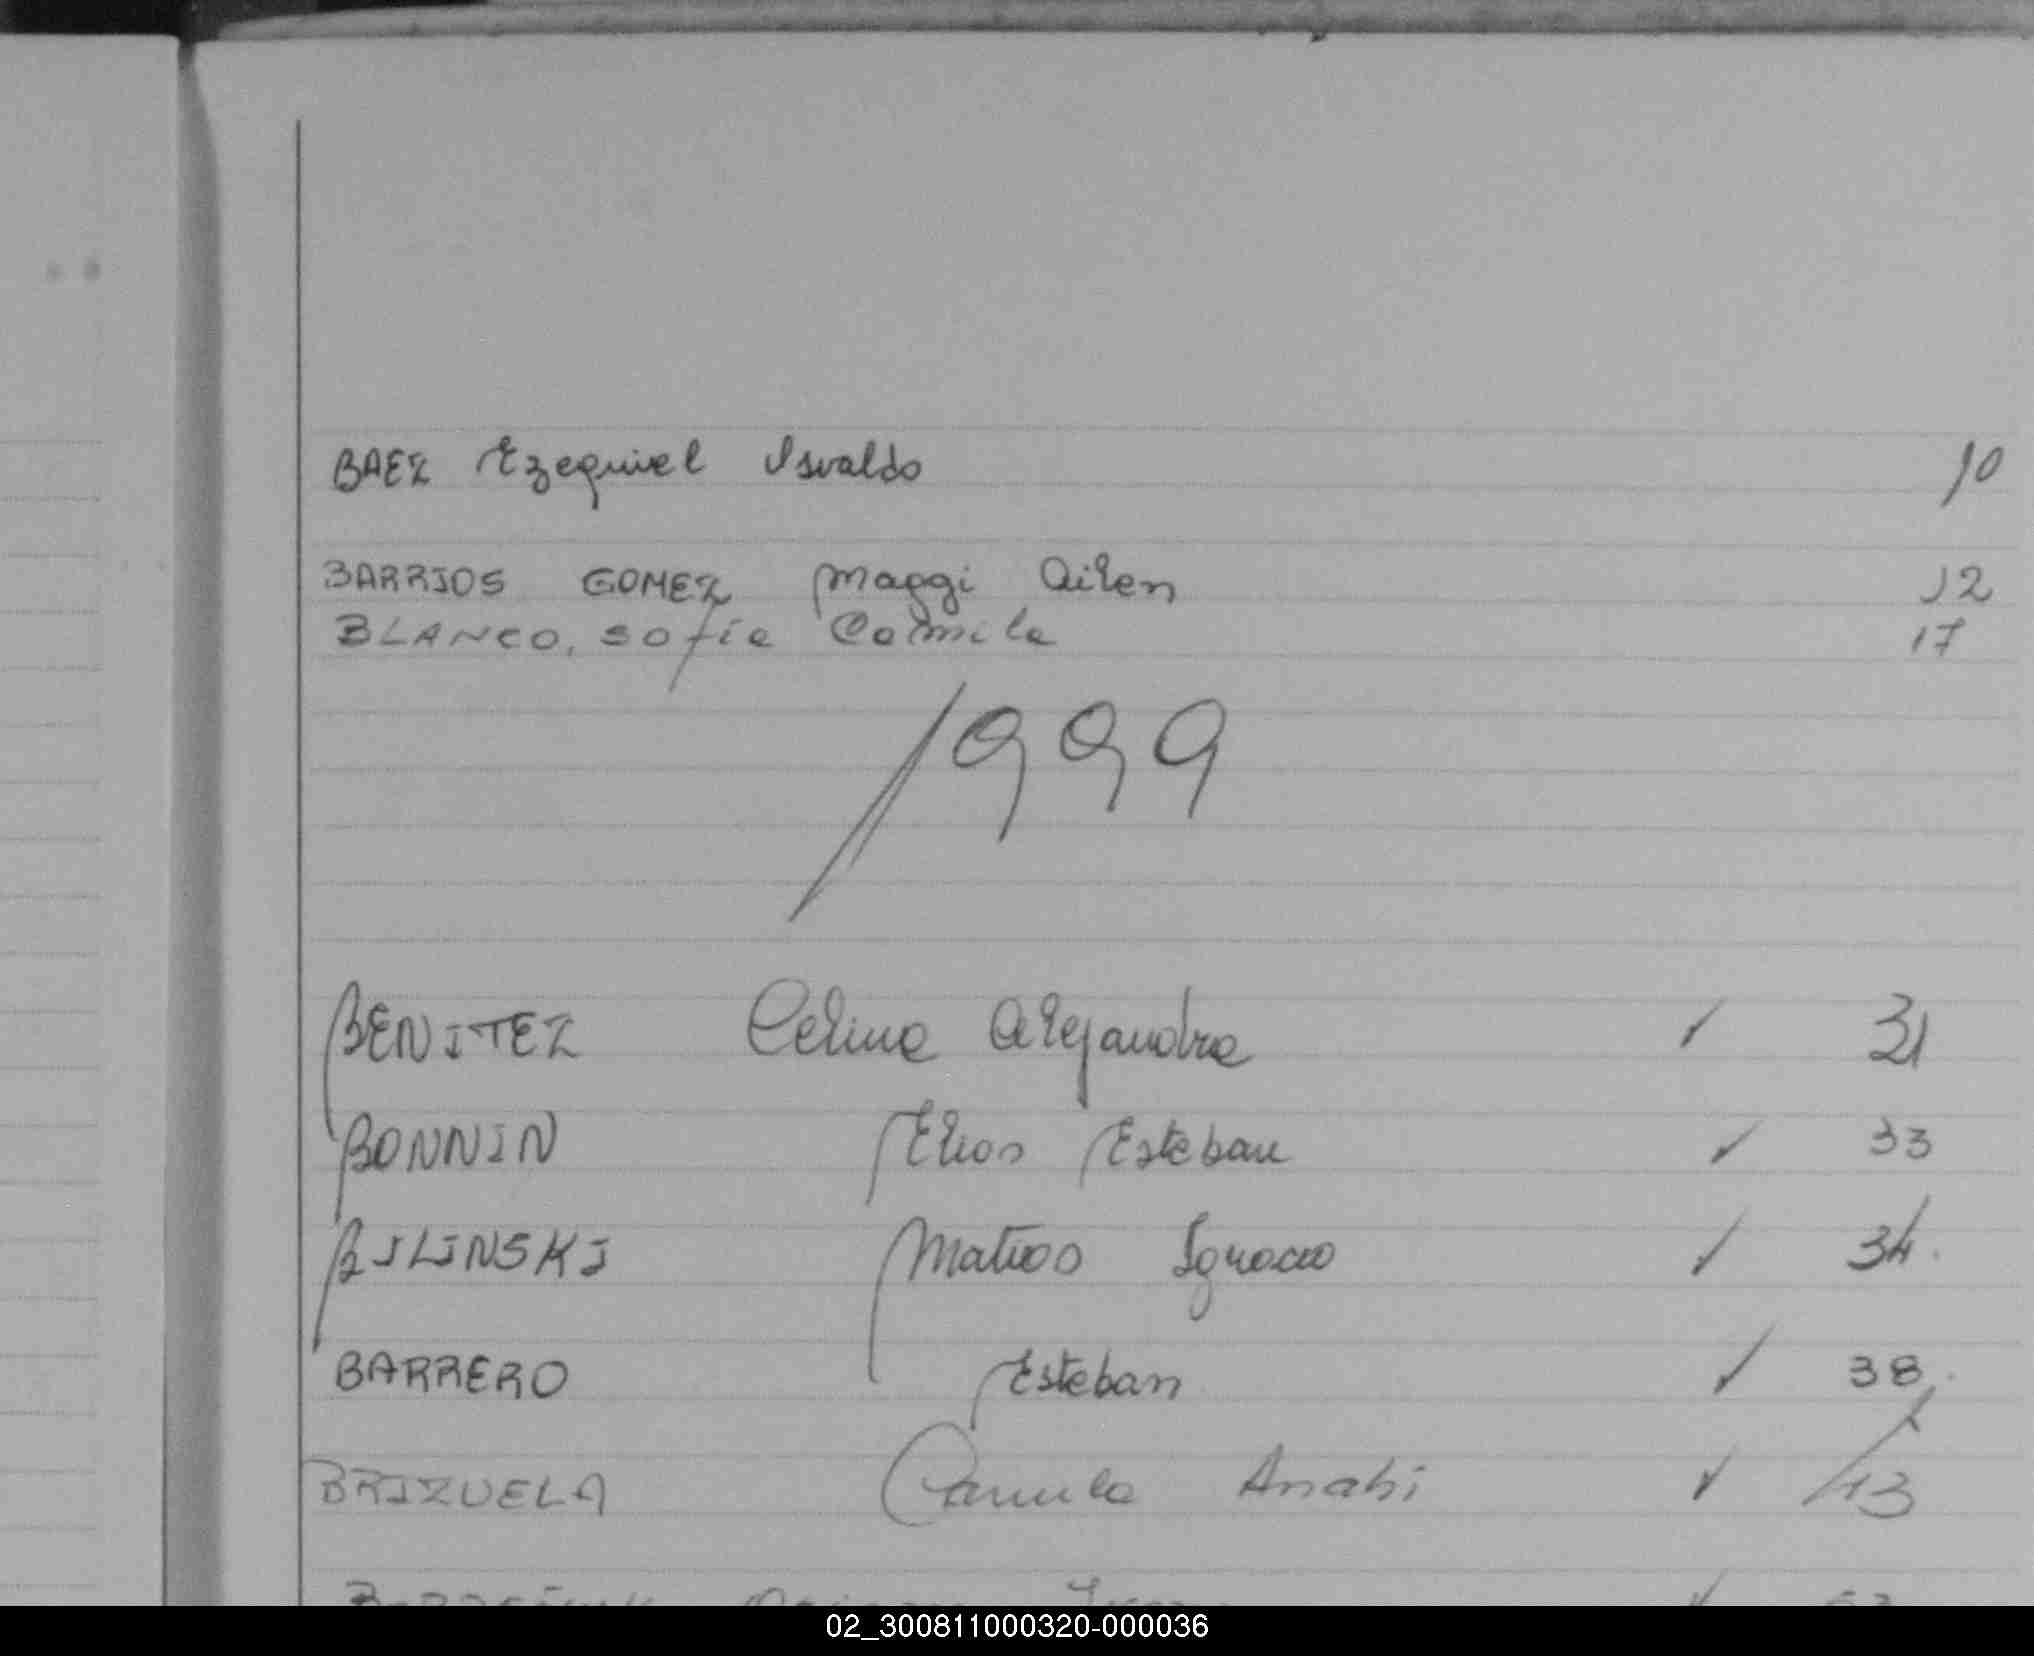 BAEZ Ezequiel Osvaldo 10
BARRIOS GOMEZ Maggi Ailen 12
BLANCO, Sofia Camila 17
1999
BENITEZ Celina Alejandra ✓ 31
BONNIN Elias Esteban ✓ 33
BILINSKI Matias Ignacio ✓ 34
BARRERO Esteban ✓ 38
BRIZUELA Camila Anahi ✓ 43
02_300811000320-000036